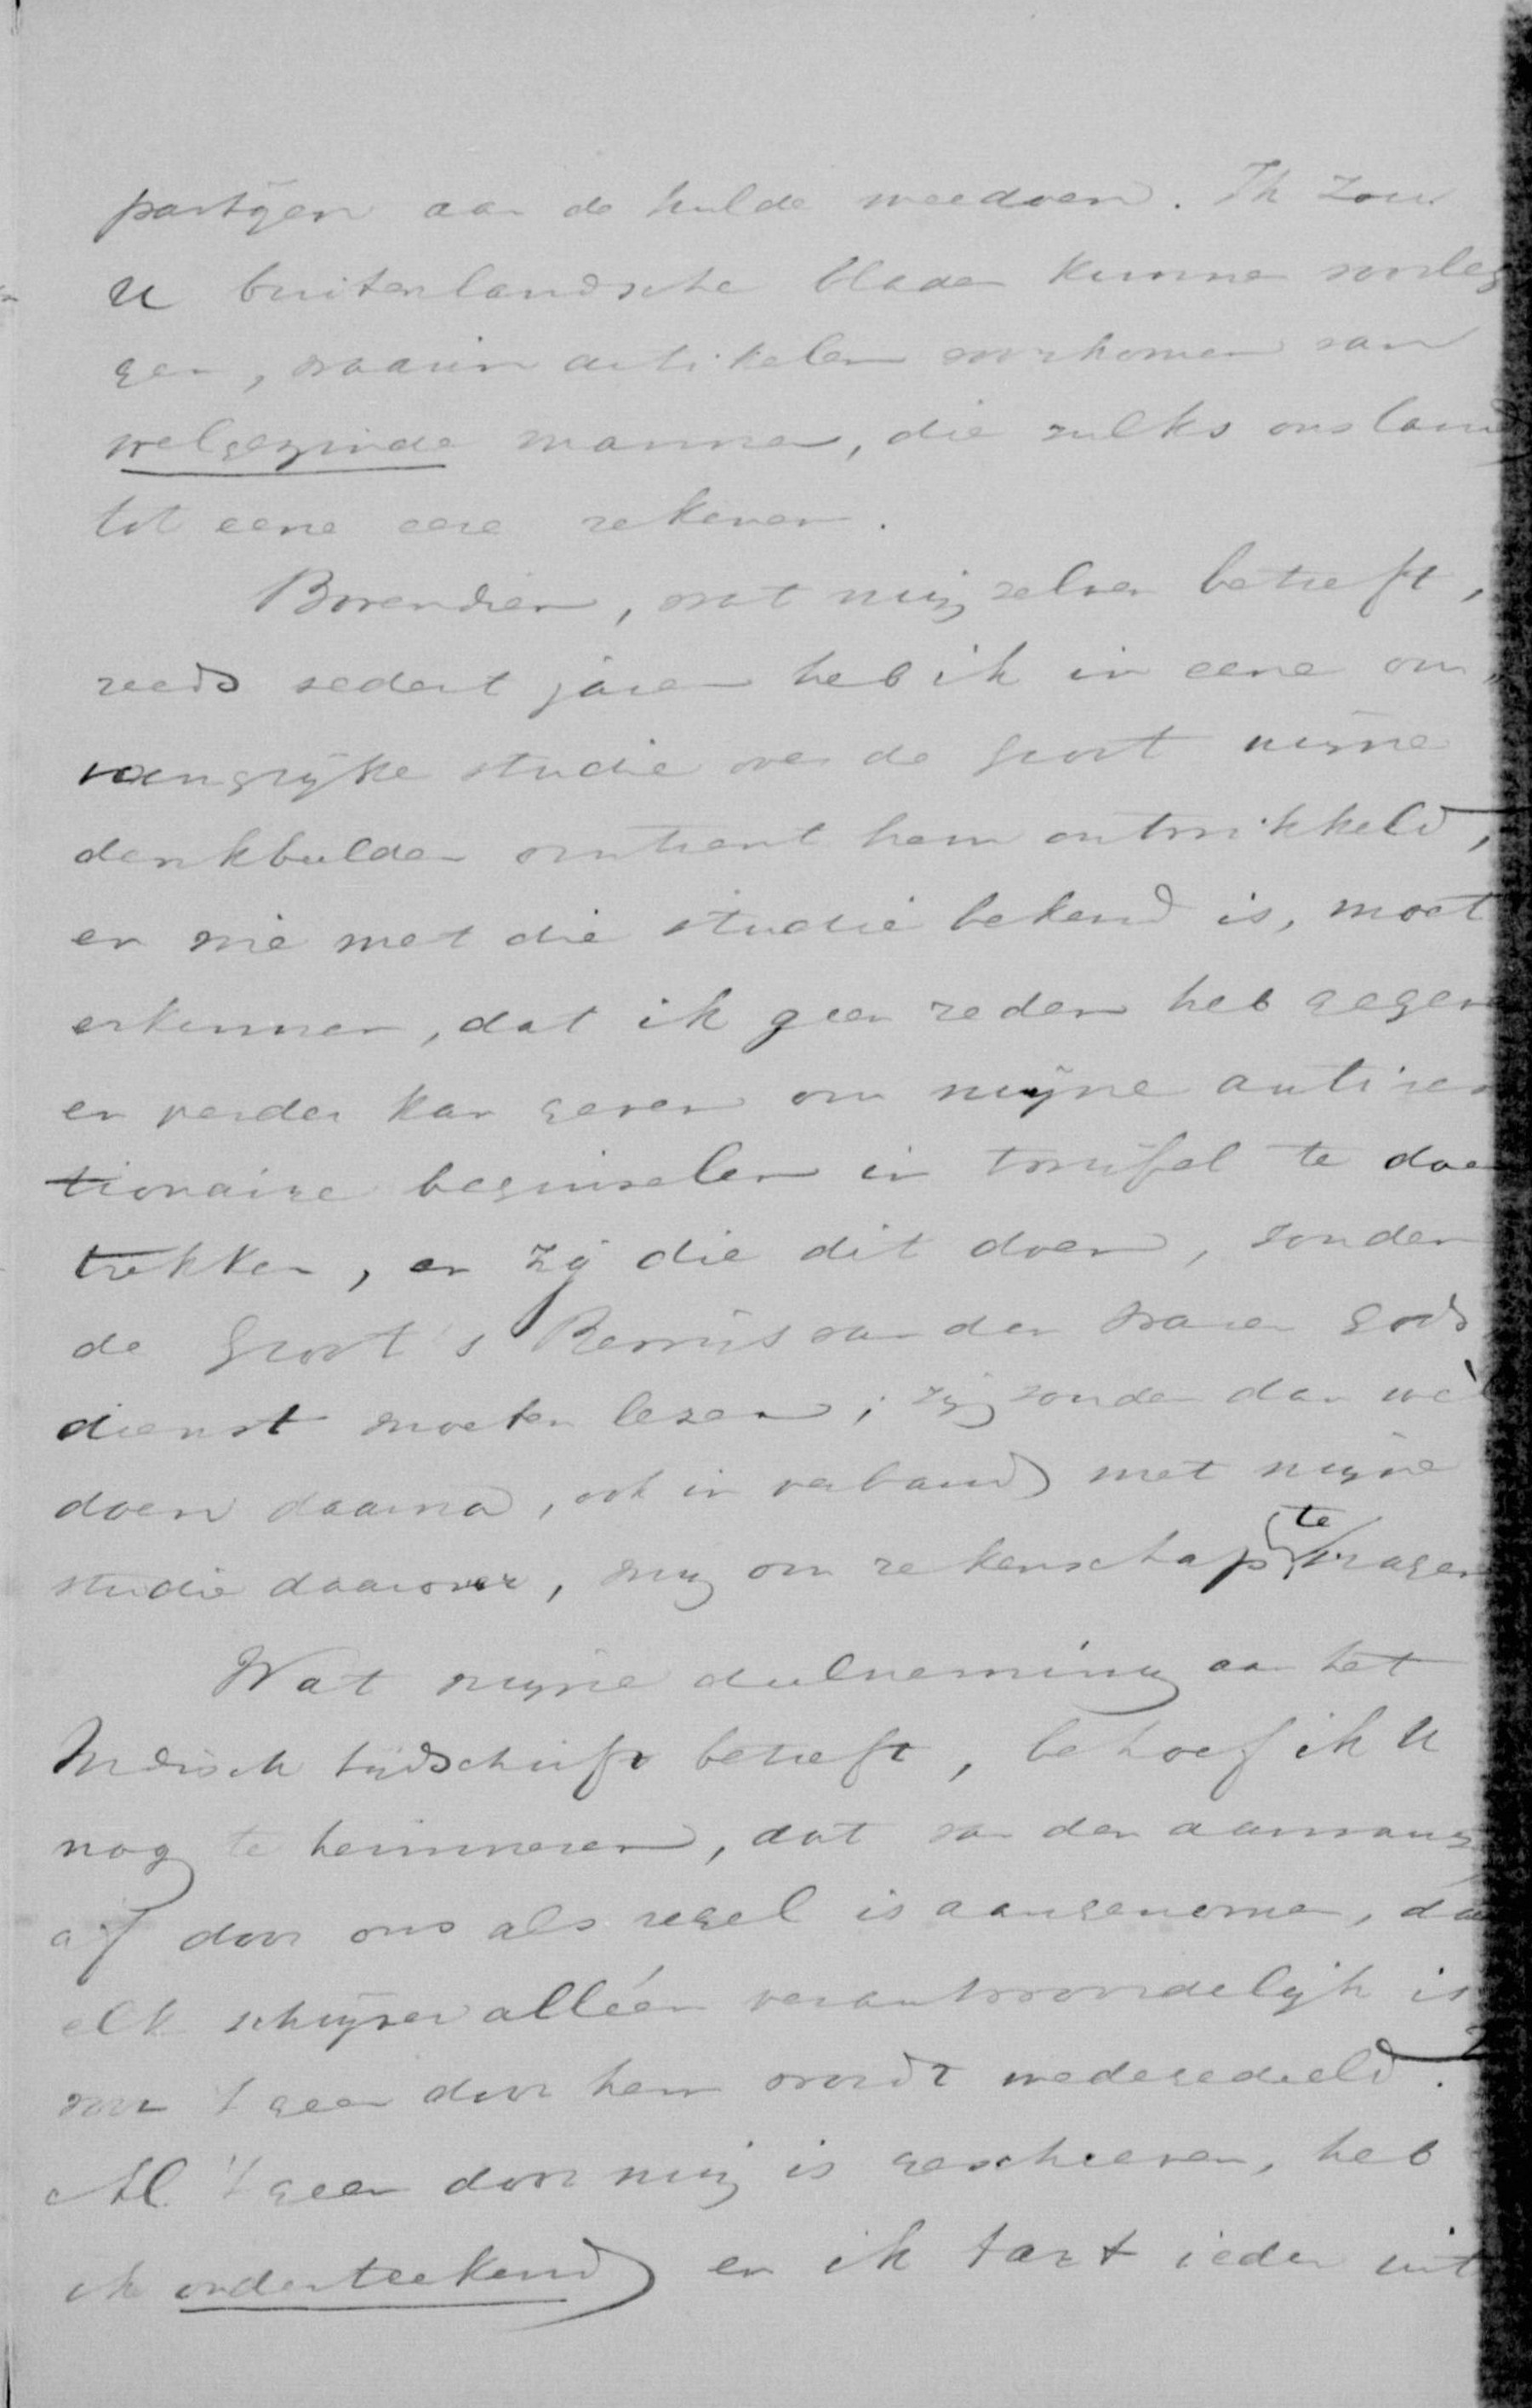 partijen aan de hulde meedoen. Ik zou
U buitenlandsche bladen kunnen voorleg
gen, waarin artikelen voorkomen van
welgezinde mannen, die zulks ons land
tot eene eere rekenen.
Bovendien, wat mij zelven betreft,
reeds sedert jaren heb ik in eene om„
vangrijke studie over de Groot mijne
denkbeelden omtrent hem ontwikkeld,
en wie met die studie bekend is, moet
erkennen, dat ik geen reden heb gegeven
en verder kan geven om mijne antirev
tionaire beginselen in twijfel te doen
trekken, en zij die dit doen, zouden
de Groot's Bewijs van den waren gods
dienst moeten lezen; zij zouden dan wèl
doen daarna, ook in verband met mijne
studie daarover, mij om rekenschap te vragen
Wat mijne deelneming aan het
Indisch tijdschrift betreft, behoef ik U
nog te herinneren, dat van den aanvang
af door ons als regel is aangenomen, dat
elk schrijver alléén verantwoordelijk is
voor 't geen door hem wordt medegedeeld.
Al 't geen door mij is geschreven, heb
ik onderteekend en ik tart ieder uit